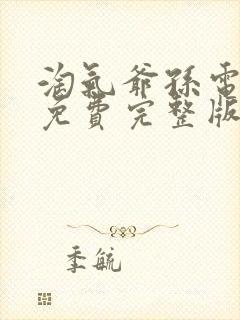 淘氣爺孫電
免費完整版
季毓